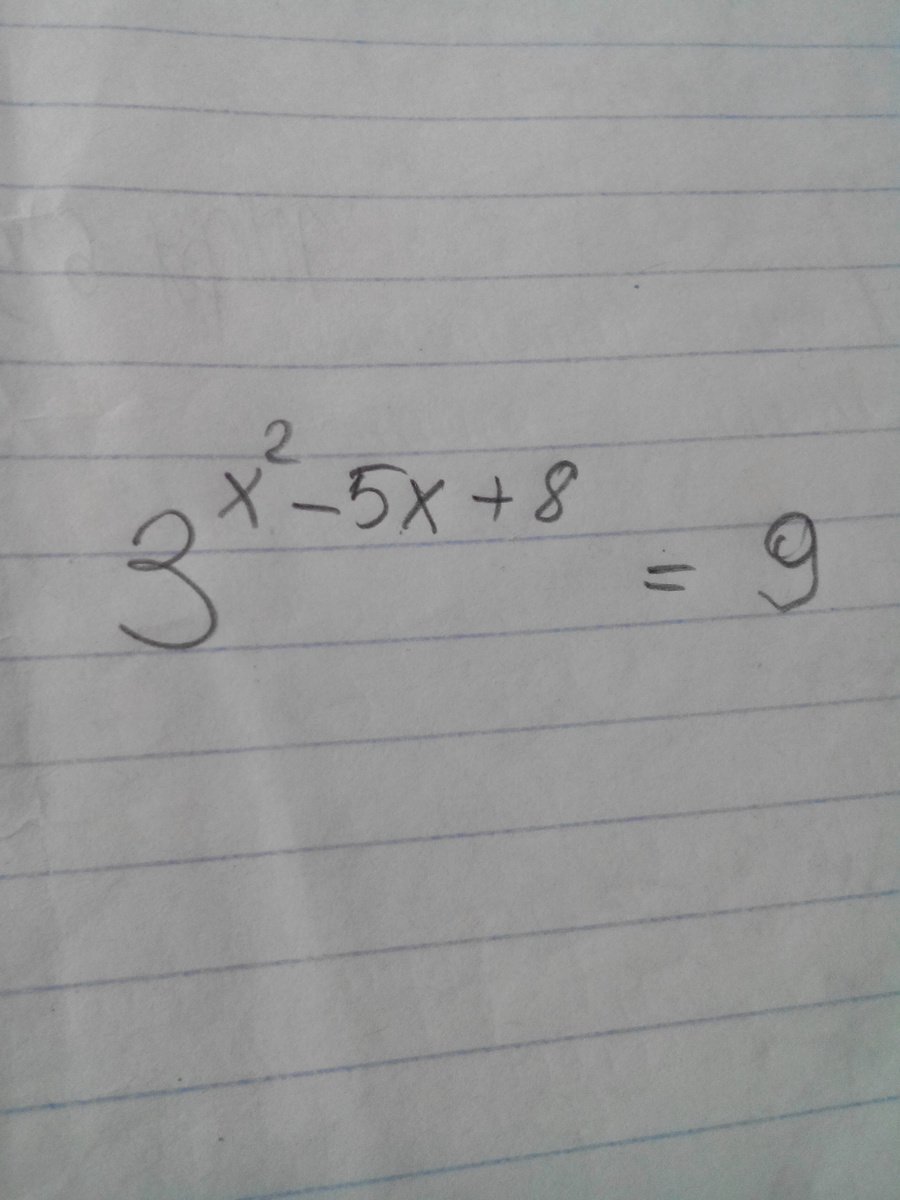 3^{x^2 - 5x + 8} = 9